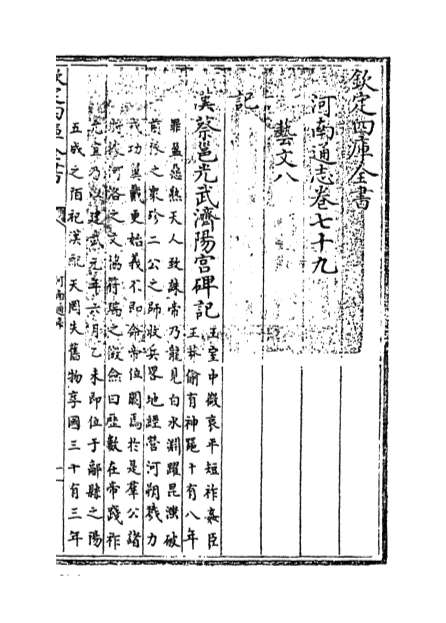 欽定四庫全書
河南通志卷七十九
藝文八
記
漢蔡邕光武濟陽宫碑記
王室中微哀平短祚姦臣
王莽偷有神器十有八年
罪盈惡熟天人致誅帝乃龍見白水淵躍昆滍破
前隊之衆殄二公之師收兵畧地經營河朔戮力
戎功翼戴更始義不即命帝位闕焉於是羣公諸
將據河洛之文協符瑞之徵僉曰歷數在帝踐祚
允宜乃以建武元年六月乙未即位于鄗縣之陽
五成之陌祀漢配天罔失舊物享國三十有三年
欽定四庫全書
河南通志